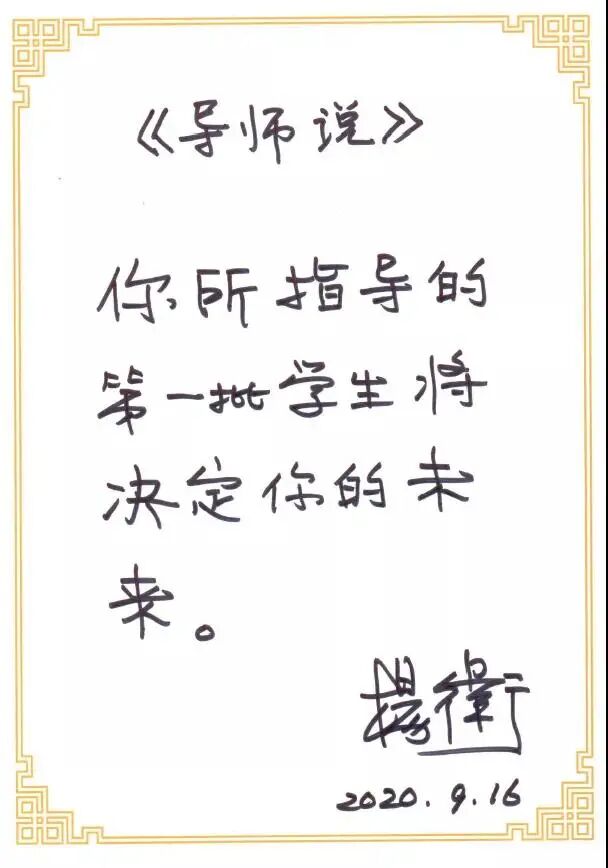 《导师说》
你所指导的
第一批学生将
决定你的未
来。
杨衛
2020.9.16